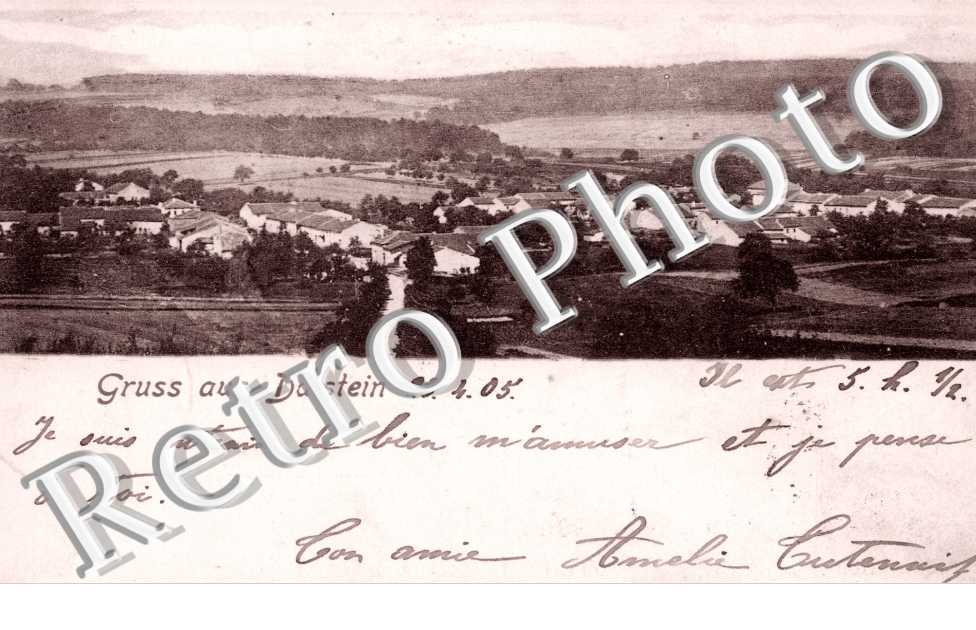 Retro Photo
Gruss aus Dalstein 4.05.
Il est 5. h. 1/2.
Je suis de bien m'amuser et je pense
à toi.
Ton amie Amelie